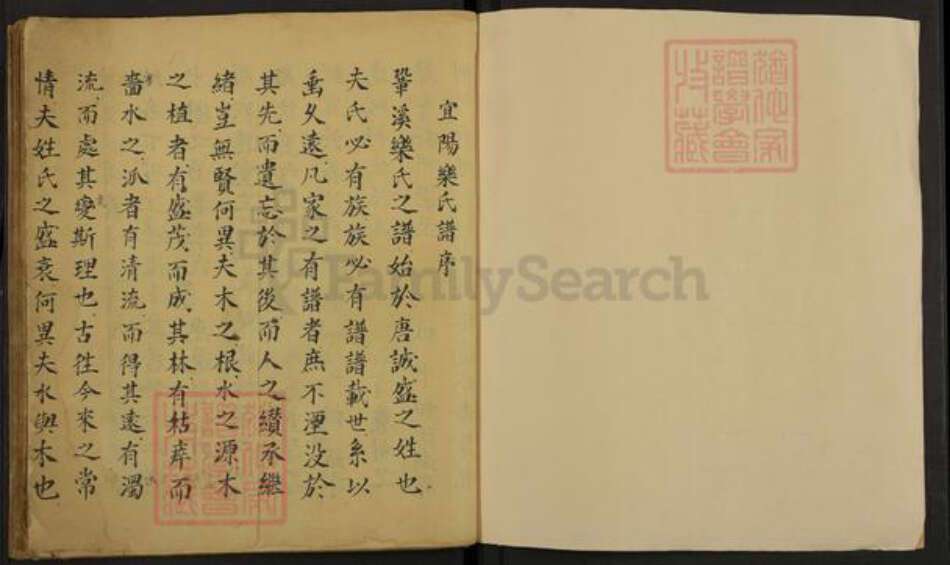 宜陽欒氏譜序
鞏溪欒氏之譜始於唐誠盛之姓也
夫氏必有族族必有譜譜載世系以
垂久遠凡家之有譜者庶不湮没於
其先而遺忘於其後而人之纘承繼
緒豈無賢何異夫木之根水之源木
之植者有盛茂而成其林有枯瘁而
嗇水之派者有清流而得其遠有濁
流而處其變斯理也古徃今來之常
情夫姓氏之盛衰何異夫水與木也
譜學會
收藏
FamilySearch